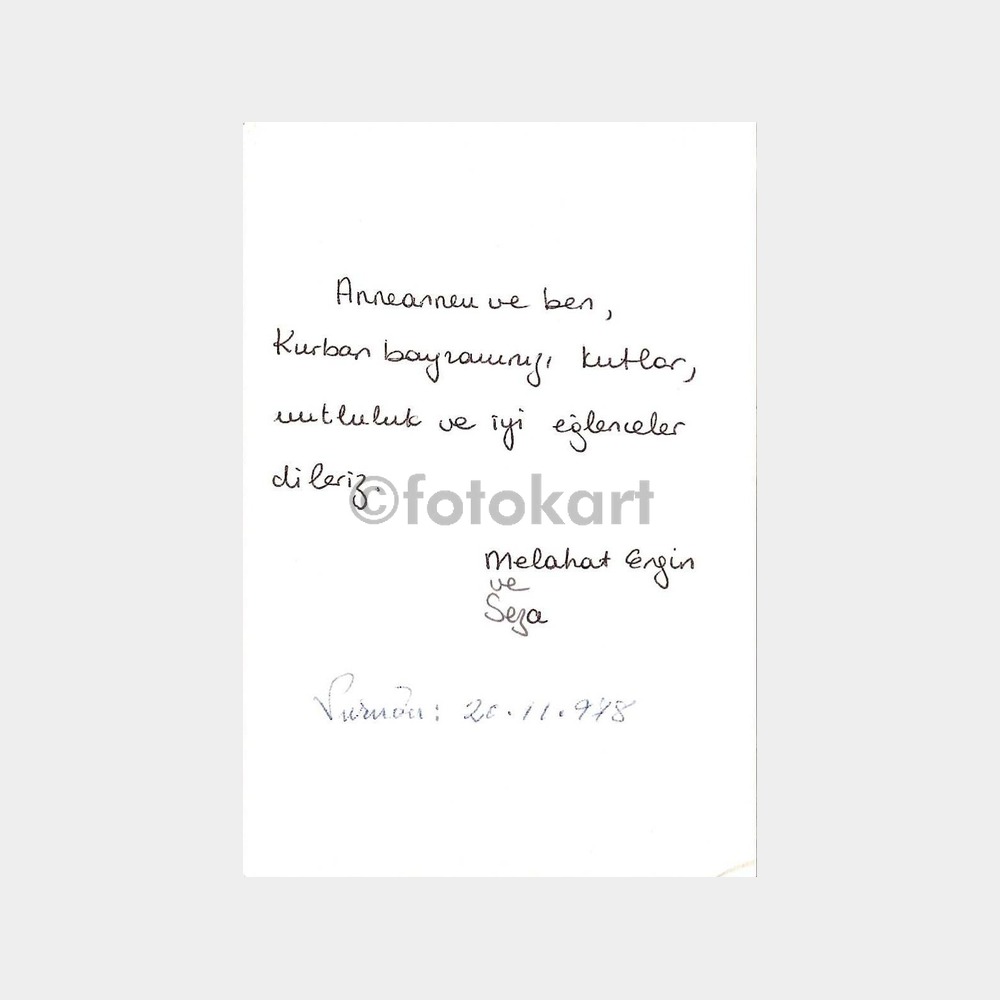 Anneannem ve ben,
Kurban bayramınızı kutlar,
mutluluk ve iyi eğlenceler
dileriz.
©fotokart
Melahat Ergin
ve
Seza
20.11.978